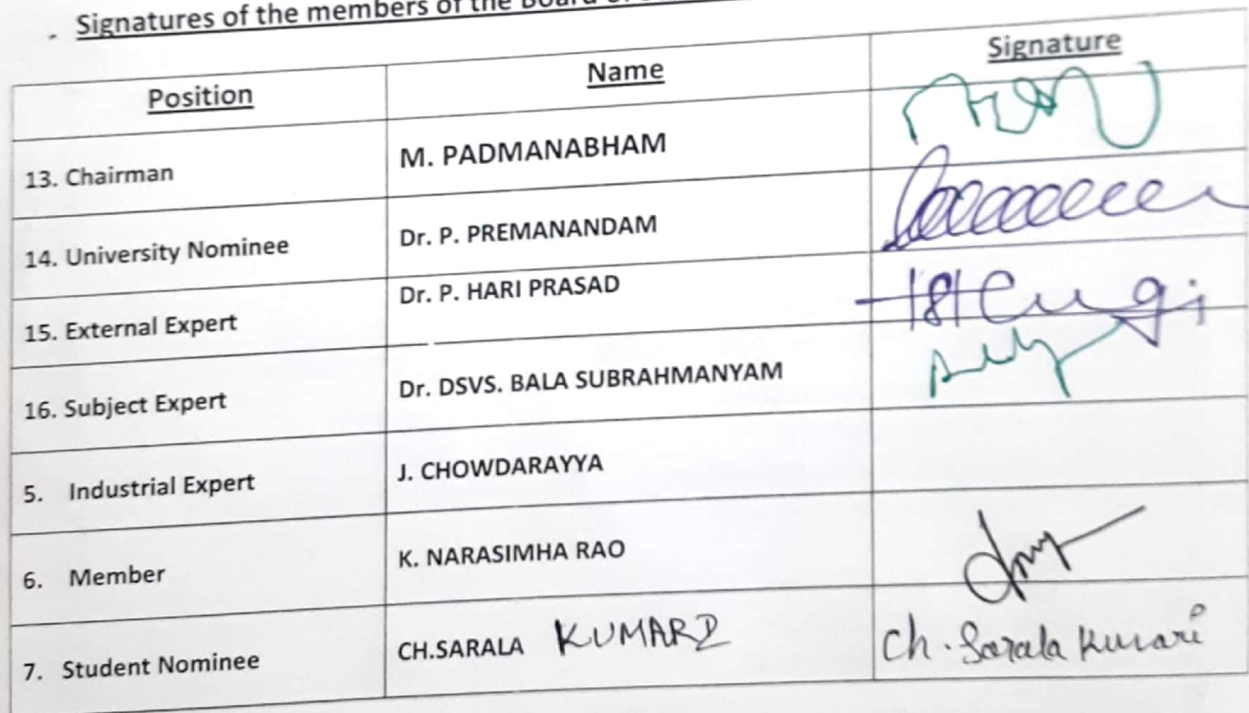 Signatures of the members of the Board of
Position Name Signature
13. Chairman M. PADMANABHAM
14. University Nominee Dr. P. PREMANANDAM
15. External Expert Dr. P. HARI PRASAD
16. Subject Expert Dr. DSVS. BALA SUBRAHMANYAM
5. Industrial Expert J. CHOWDARAYYA
6. Member K. NARASIMHA RAO
7. Student Nominee CH.SARALA KUMARI Ch. Sarala Kumari